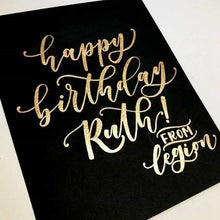 happy
birthday
Ruth!
FROM
legion